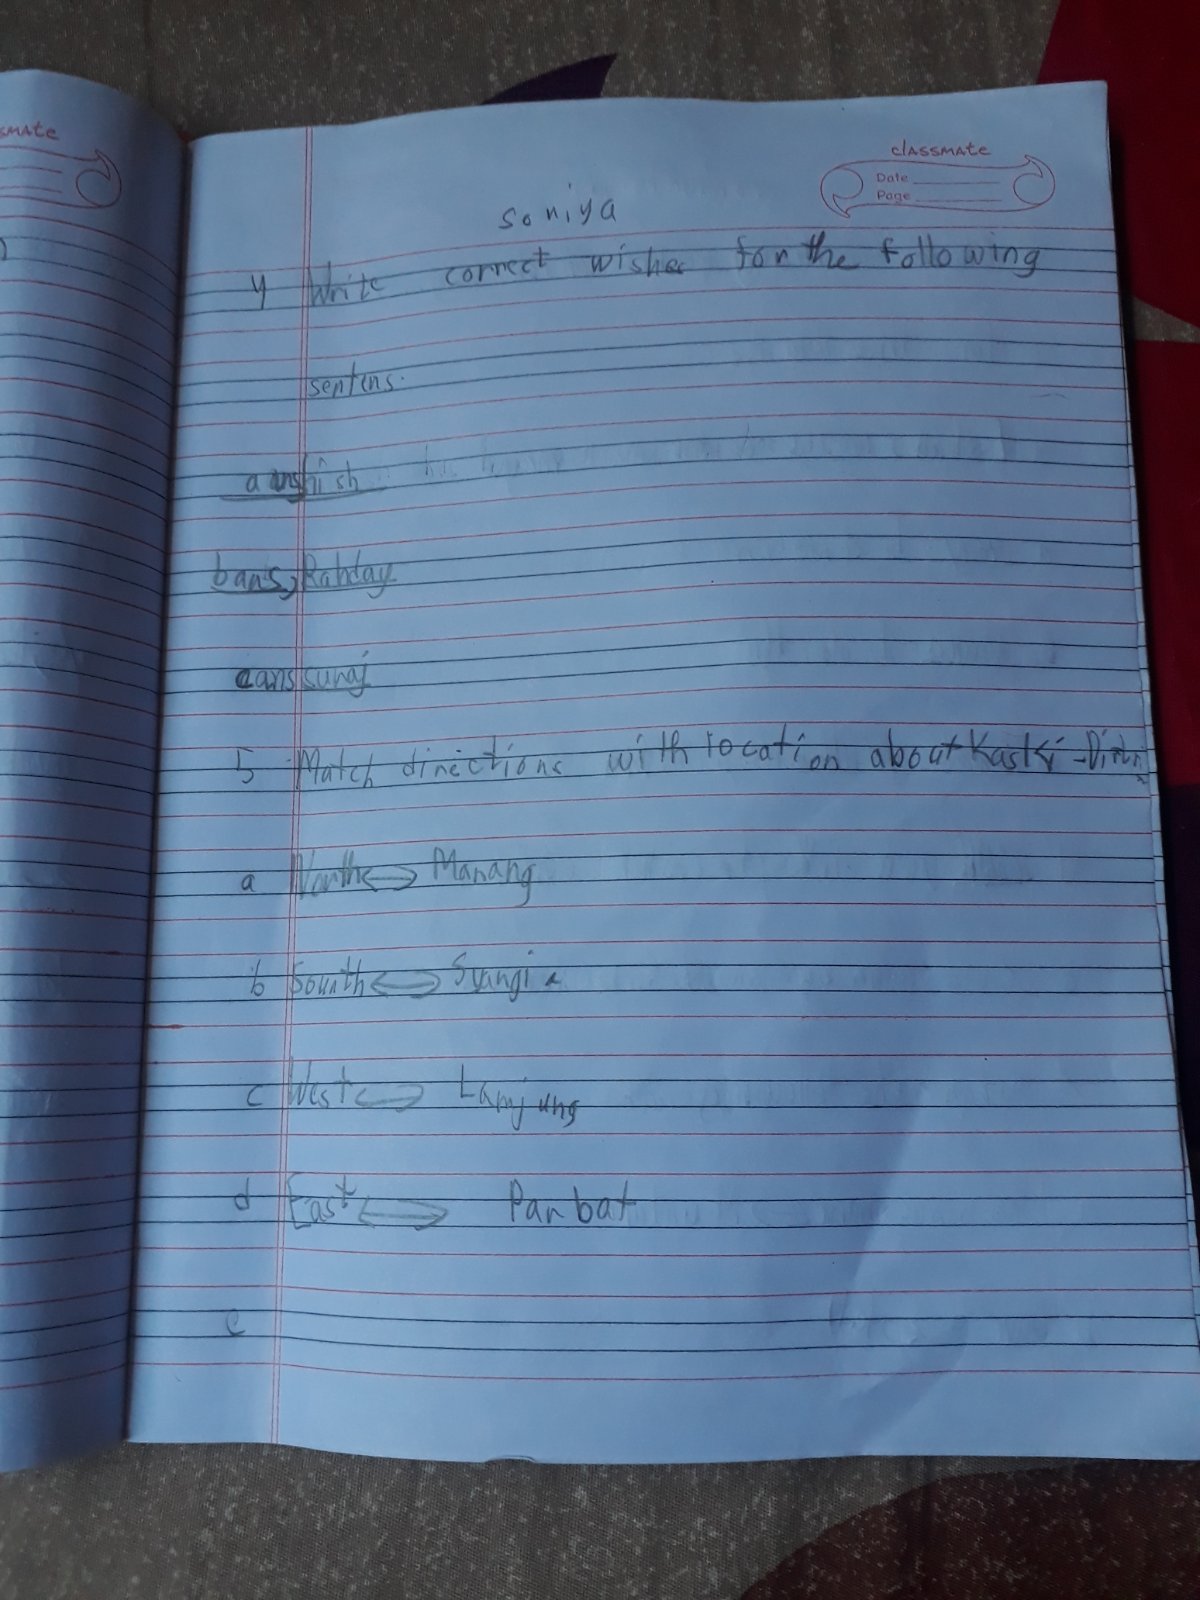 SMATE
classmate
Date
Page
soniya
4 Write correct wishes for the following
sentins.
a ans hish
b ans, Rabday
c ans suraj
5 Match directions with location about Kaski-Distri
a North ⟺ Manang
b South ⟺ Syangja
c West ⟺ Lamjung
d East ⟺ Parbat
e